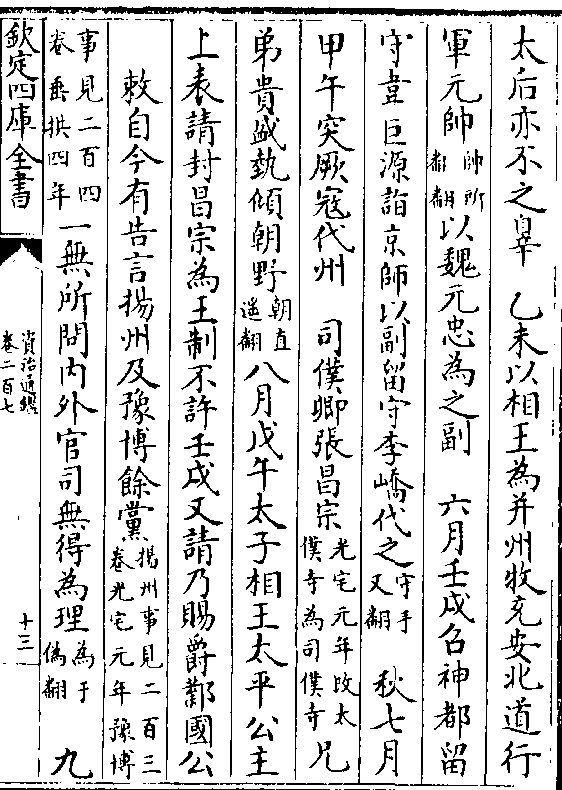 太后亦不之辠　乙未以相王為并州牧充安北道行
軍元帥帥所類翻以魏元忠為之副　六月壬戌召神都留
守韋巨源詣京師以副留守李嶠代之守手又翻　秋七月
甲午突厥寇代州　司僕卿張昌宗光宅元年改太僕寺為司僕寺兄
弟貴盛埶傾朝野朝直遥翻八月戊午太子相王太平公主
上表請封昌宗為王制不許壬戌又請乃賜爵鄴國公
敕自今有告言揚州及豫博餘黨揚州事見二百三卷光宅元年豫博
事見二百四卷垂拱四年一無所問内外官司無得為理為于偽翻　九
欽定四庫全書
資治通鑑
卷二百七
十三